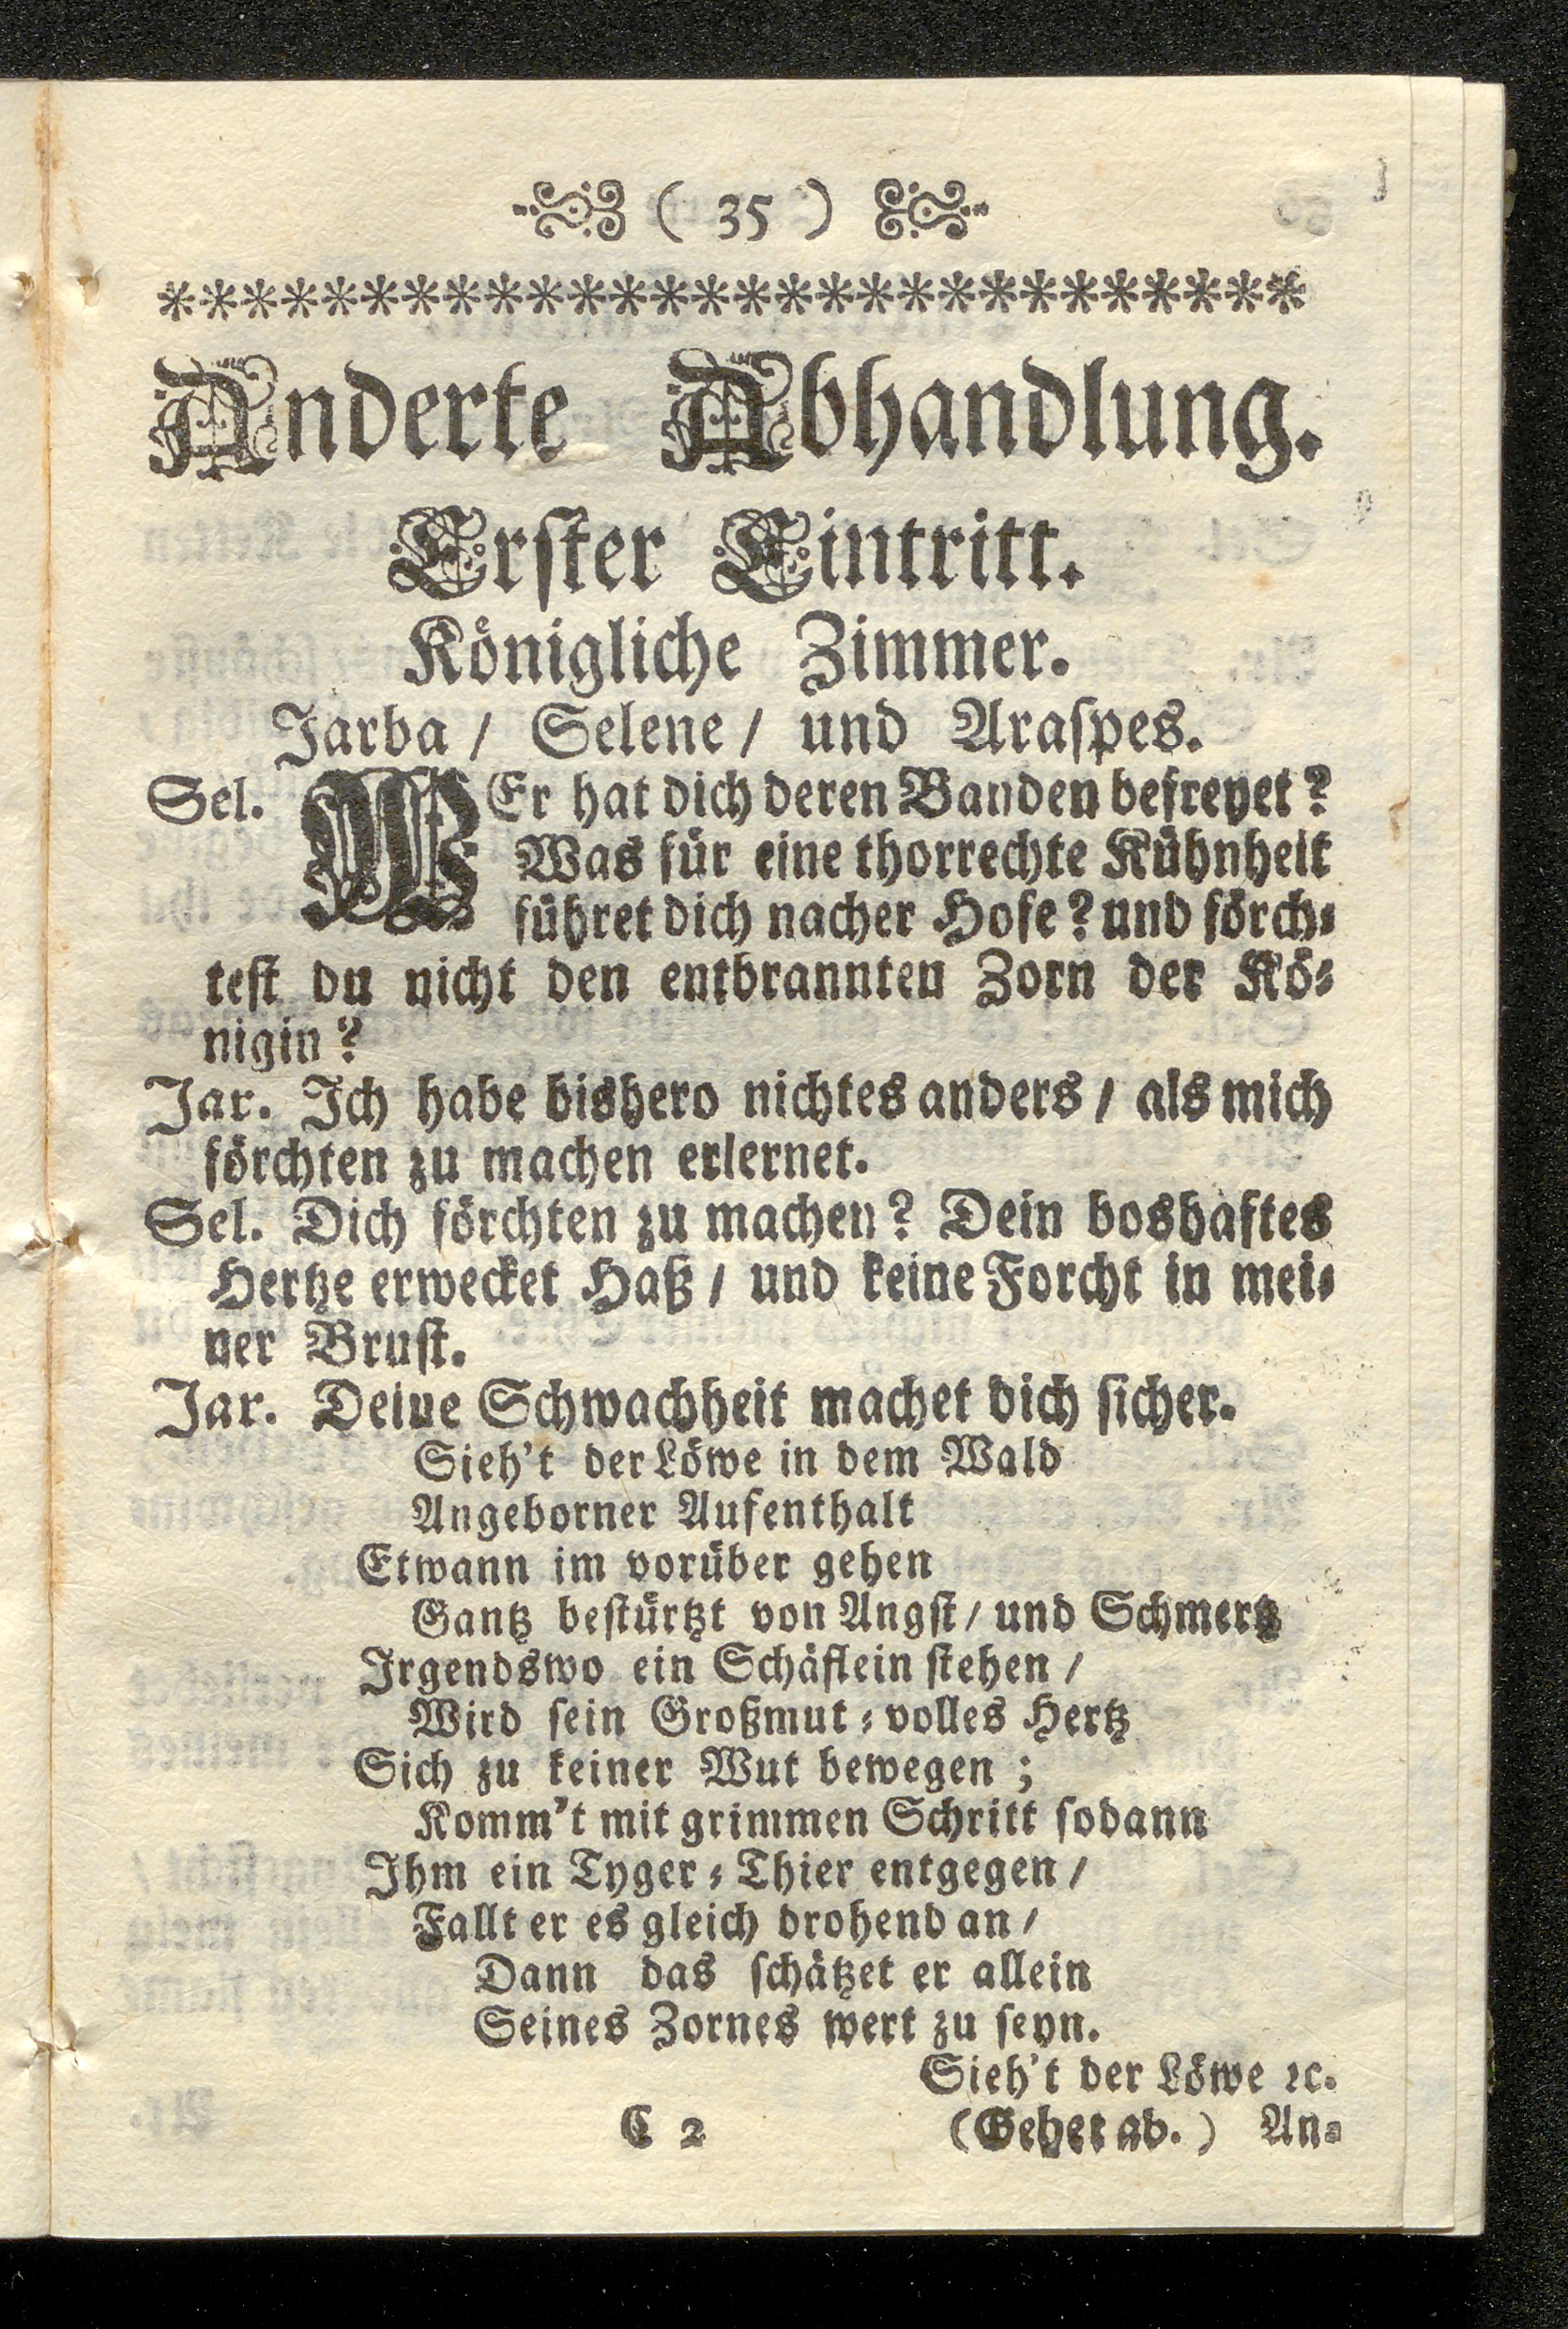 ( 35 )
Anderte Abhandlung.
Erster Eintritt.
Königliche Zimmer.
Jarba / Selene / und Araspes.
Sel. WEr hat dich deren Banden befreyet?
Was für eine thorrechte Kühnheit
führet dich nacher Hofe? und förch-
test du nicht den entbrannten Zorn der Kö-
nigin?
Jar. Ich habe bishero nichtes anders / als mich
förchten zu machen erlernet.
Sel. Dich förchten zu machen? Dein boshaftes
Hertze erwecket Haß / und keine Forcht in mei-
ner Brust.
Jar. Deine Schwachheit machet dich sicher.
Sieh't der Löwe in dem Wald
Angeborner Aufenthalt
Etwann im vorüber gehen
Gantz bestürtzt von Angst / und Schmertz
Irgendswo ein Schäflein stehen /
Wird sein Großmut-volles Hertz
Sich zu keiner Wut bewegen ;
Komm't mit grimmen Schritt sodann
Ihm ein Tyger-Thier entgegen /
Fallt er es gleich drohend an /
Dann das schätzet er allein
Seines Zornes wert zu seyn.
Sieh't der Löwe ꝛc.
C 2 (Gehet ab.) An-